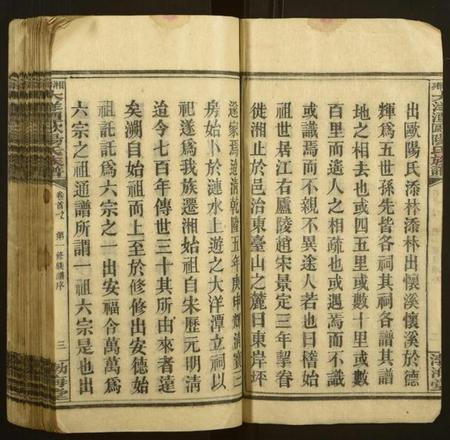 出歐陽氏添林添林出懷溪懷溪於德
輝爲五世孫先皆各祠其祠各譜其譜
地之相去也或四五里或數十里或
百里而遙人之相疏也或遇焉而不識
或識焉而不親不異途人若也曰稽始
祖世居江右廬陵趙宋景定三年挈眷
徙湘止於邑治東臺山之麓曰東岸坪
遂家焉迨清乾隆五年庚申
房始卜於漣水上遊之大洋潭立祠以
祀遂爲我族遷湘始祖自宋歷元明清
迨今七百年傳世三十其所由來者遠
矣溯自始祖而上至於修修出安德始
祖託託爲六宗之一出安福今萬萬爲
六宗之祖通譜所謂一祖六宗是也出
大洋潭歐陽氏族譜
卷首之
第一修族譜序
三
渤海堂